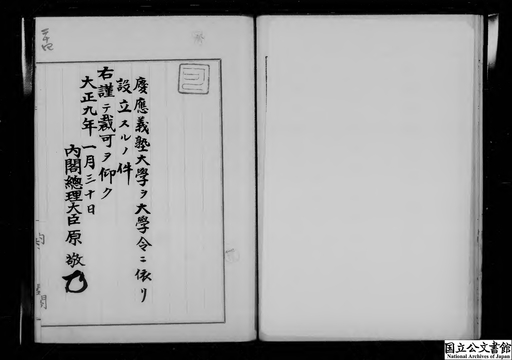 慶應義塾大學ヲ大學令ニ依リ
設立スルノ件
右謹テ裁可ヲ仰ク
大正九年一月三十日
內閣總理大臣原敬
国立公文書館
National Archives of Japan